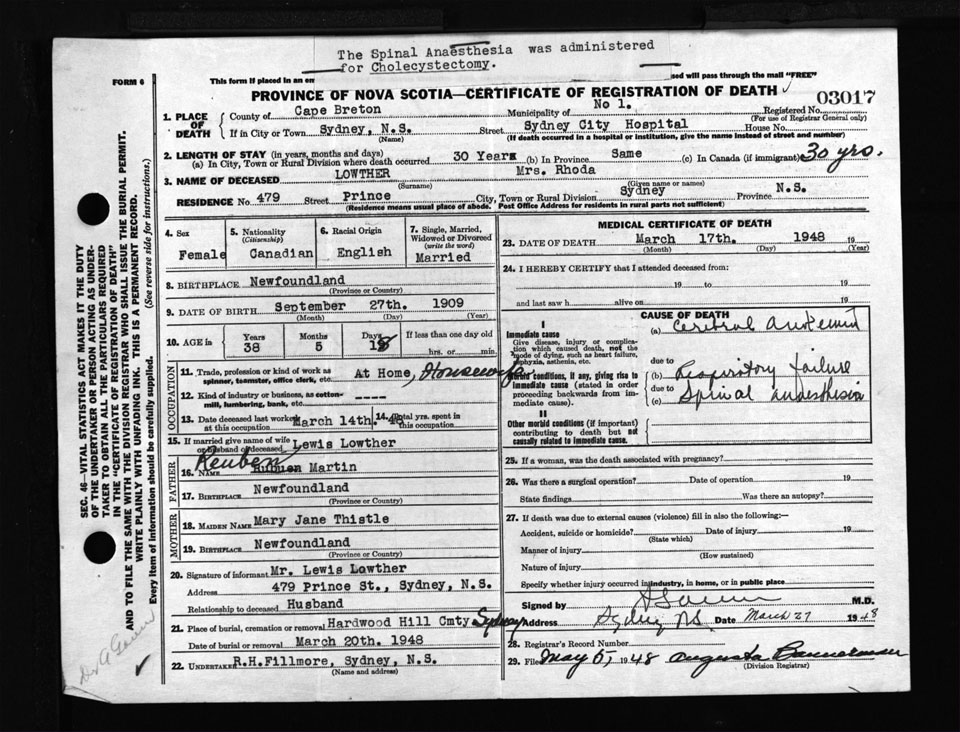 The Spinal Anaesthesia was administered
for Cholecystectomy.
FORM 6
This form if placed in an en
sed will pass through the mail "FREE"
PROVINCE OF NOVA SCOTIA—CERTIFICATE OF REGISTRATION OF DEATH
03017
1. PLACE OF DEATH
County of Cape Breton Municipality of No 1. Registered No.
(For use of Registrar General only)
If in City or Town Sydney, N.S. Street Sydney City Hospital House No.
(Name) (If death occurred in a hospital or institution, give the name instead of street and number)
2. LENGTH OF STAY (in years, months and days)
(a) In City, Town or Rural Division where death occurred 30 Years (b) In Province Same (c) In Canada (if immigrant) 30 yrs.
3. NAME OF DECEASED LOWTHER Mrs. Rhoda
(Surname) (Given name or names)
RESIDENCE No. 479 Street Prince City, Town or Rural Division Sydney Province N.S.
(Residence means usual place of abode. Post Office Address for residents in rural parts not sufficient)
4. Sex
Female
5. Nationality
(Citizenship)
Canadian
6. Racial Origin
English
7. Single, Married, Widowed or Divorced
(write the word)
Married
8. BIRTHPLACE Newfoundland
(Province or Country)
9. DATE OF BIRTH September 27th. 1909
(Month) (Day) (Year)
10. AGE in Years Months Days If less than one day old
38 5 18 hrs. or min.
OCCUPATION
11. Trade, profession or kind of work as
spinner, teamster, office clerk, etc. At Home, Housewife
12. Kind of industry or business, as cotton-
mill, lumbering, bank, etc. ----
13. Date deceased last worked
at this occupation March 14th. 48
14. Total yrs. spent in
this occupation
15. If married give name of wife
or husband of deceased Lewis Lowther
FATHER
Reuben
16. NAME Martin
17. BIRTHPLACE Newfoundland
(Province or Country)
MOTHER
18. MAIDEN NAME Mary Jane Thistle
19. BIRTHPLACE Newfoundland
(Province or Country)
20. Signature of informant Mr. Lewis Lowther
Address 479 Prince St., Sydney, N.S.
Relationship to deceased Husband
21. Place of burial, cremation or removal Hardwood Hill Cmty Sydney
Date of burial or removal March 20th. 1948
22. UNDERTAKER R.H.Fillmore, Sydney, N.S.
(Name and address)
MEDICAL CERTIFICATE OF DEATH
23. DATE OF DEATH March 17th. 1948 19
(Month) (Day) (Year)
24. I HEREBY CERTIFY that I attended deceased from:
19 to 19
and last saw h alive on 19
CAUSE OF DEATH
I
Immediate cause
Give disease, injury or complica-
tion which caused death, not the
mode of dying, such as heart failure,
asphyxia, asthenia, etc.
(a) Cerebral
due to
Morbid conditions, if any, giving rise to
immediate cause (stated in order
proceeding backwards from im-
mediate cause).
(b) Respiratory failure
due to
(c) Spinal anaesthesia
II
Other morbid conditions (if important)
contributing to death but not
causally related to immediate cause.
25. If a woman, was the death associated with pregnancy?
26. Was there a surgical operation? Date of operation 19
State findings Was there an autopsy?
27. If death was due to external causes (violence) fill in also the following:—
Accident, suicide or homicide? Date of injury 19
(State which)
Manner of injury
(How sustained)
Nature of injury
Specify whether injury occurred in industry, in home, or in public place
Signed by M.D.
Address Sydney NS Date March 27 1948
28. Registrar's Record Number
29. Filed May 5, 1948 Augusta Bannerman
(Division Registrar)
SEC. 46—VITAL STATISTICS ACT MAKES IT THE DUTY
OF THE UNDERTAKER OR PERSON ACTING AS UNDER-
TAKER TO OBTAIN ALL THE PARTICULARS REQUIRED
IN THE "CERTIFICATE OF REGISTRATION OF DEATH"
AND TO FILE THE SAME WITH THE DIVISION REGISTRAR WHO SHALL ISSUE THE BURIAL PERMIT.
WRITE PLAINLY WITH UNFADING INK. THIS IS A PERMANENT RECORD.
Every item of information should be carefully supplied. (See reverse side for instructions.)